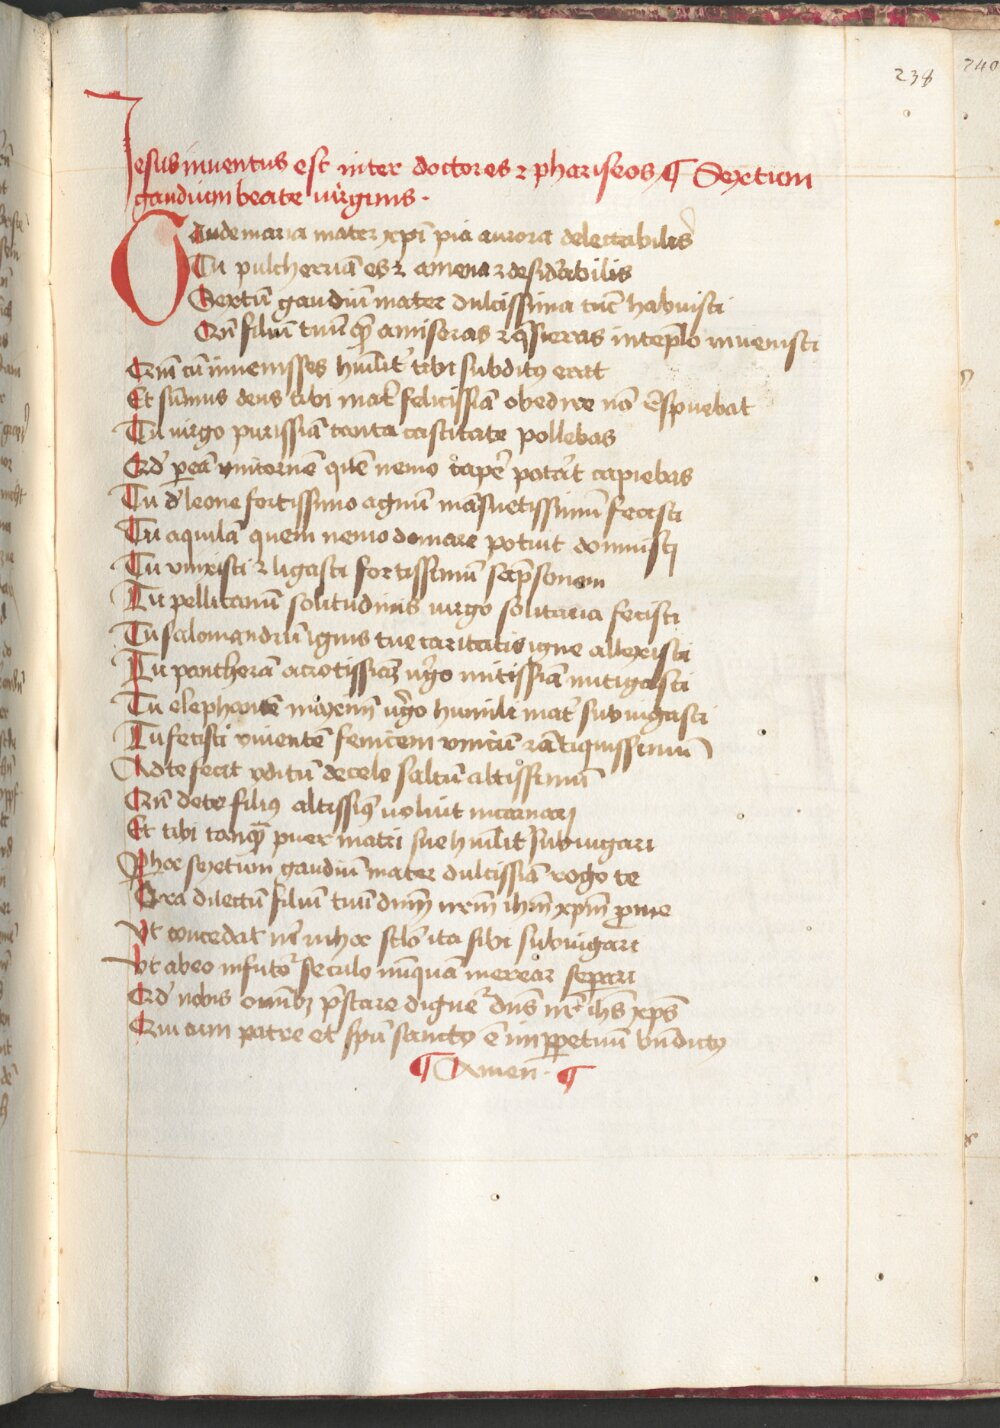 238
240
Jesus inventus est inter doctores ⁊ phariseos ¶ Sextum
gaudium beate virginis ·
Gaude maria mater xp̄i pia aurora delectabilis
Tu pulcherrīa es ⁊ amena ⁊ desiderabilis
Sextū gaudiū mater dulcissima tūc habuisti
Cū filiū tuū quē amiseras ⁊ q̄sieras in tēplo invenisti
Quē cū invenisses hūilit̄ tibi subditꝰ erat
Et sūmus deus tibi mat̄ felicissīa obedire nō respuebat
Tu virgo purissīa tanta castitate pollebas
Qd̄ unicornē quē nemo capere poterat capiebas
Tu de leone fortissimo agnū māsuetissimū fecisti
Tu aquilā quem nemo domare potuit domuisti
Tu vinxisti ⁊ ligasti fortissimū sāpsonem
Tu pellicanū solitudinis virgo solitaria fecisti
Tu salomandrū ignis tue caritatis igne allexisti
Tu pantherā virgo mitissīa mitigasti
Tu elephantē virgo humili mat̄ subiugasti
Tu fecisti viventē fenicem unicū ⁊ ātiquissimū
Ad te fecit de celo saltū altissimū
Cū de te filiꝰ altissimꝰ voluit incarnari
Et tibi tanqȝ puer matri sue hūilit̄ subiugari
P hoc sextum gaudiū mater dulcissīa rogo te
Ora dilectū filiū tuū dnm̄ nrm̄ ihm̄ xpm̄ pro me
Ut concedat in hoc sclō ita sibi subiugari
Ut ab eo in futuro seculo nūquā merear separi
Qd̄ nobis omībȝ p̄stare dignet̄ dn̄s nr̄ ihs̄ xps̄
Qui cum patre et sp̄u sanctō ē in ꝑpetuū bn̄dictꝰ
¶ Amen · ¶